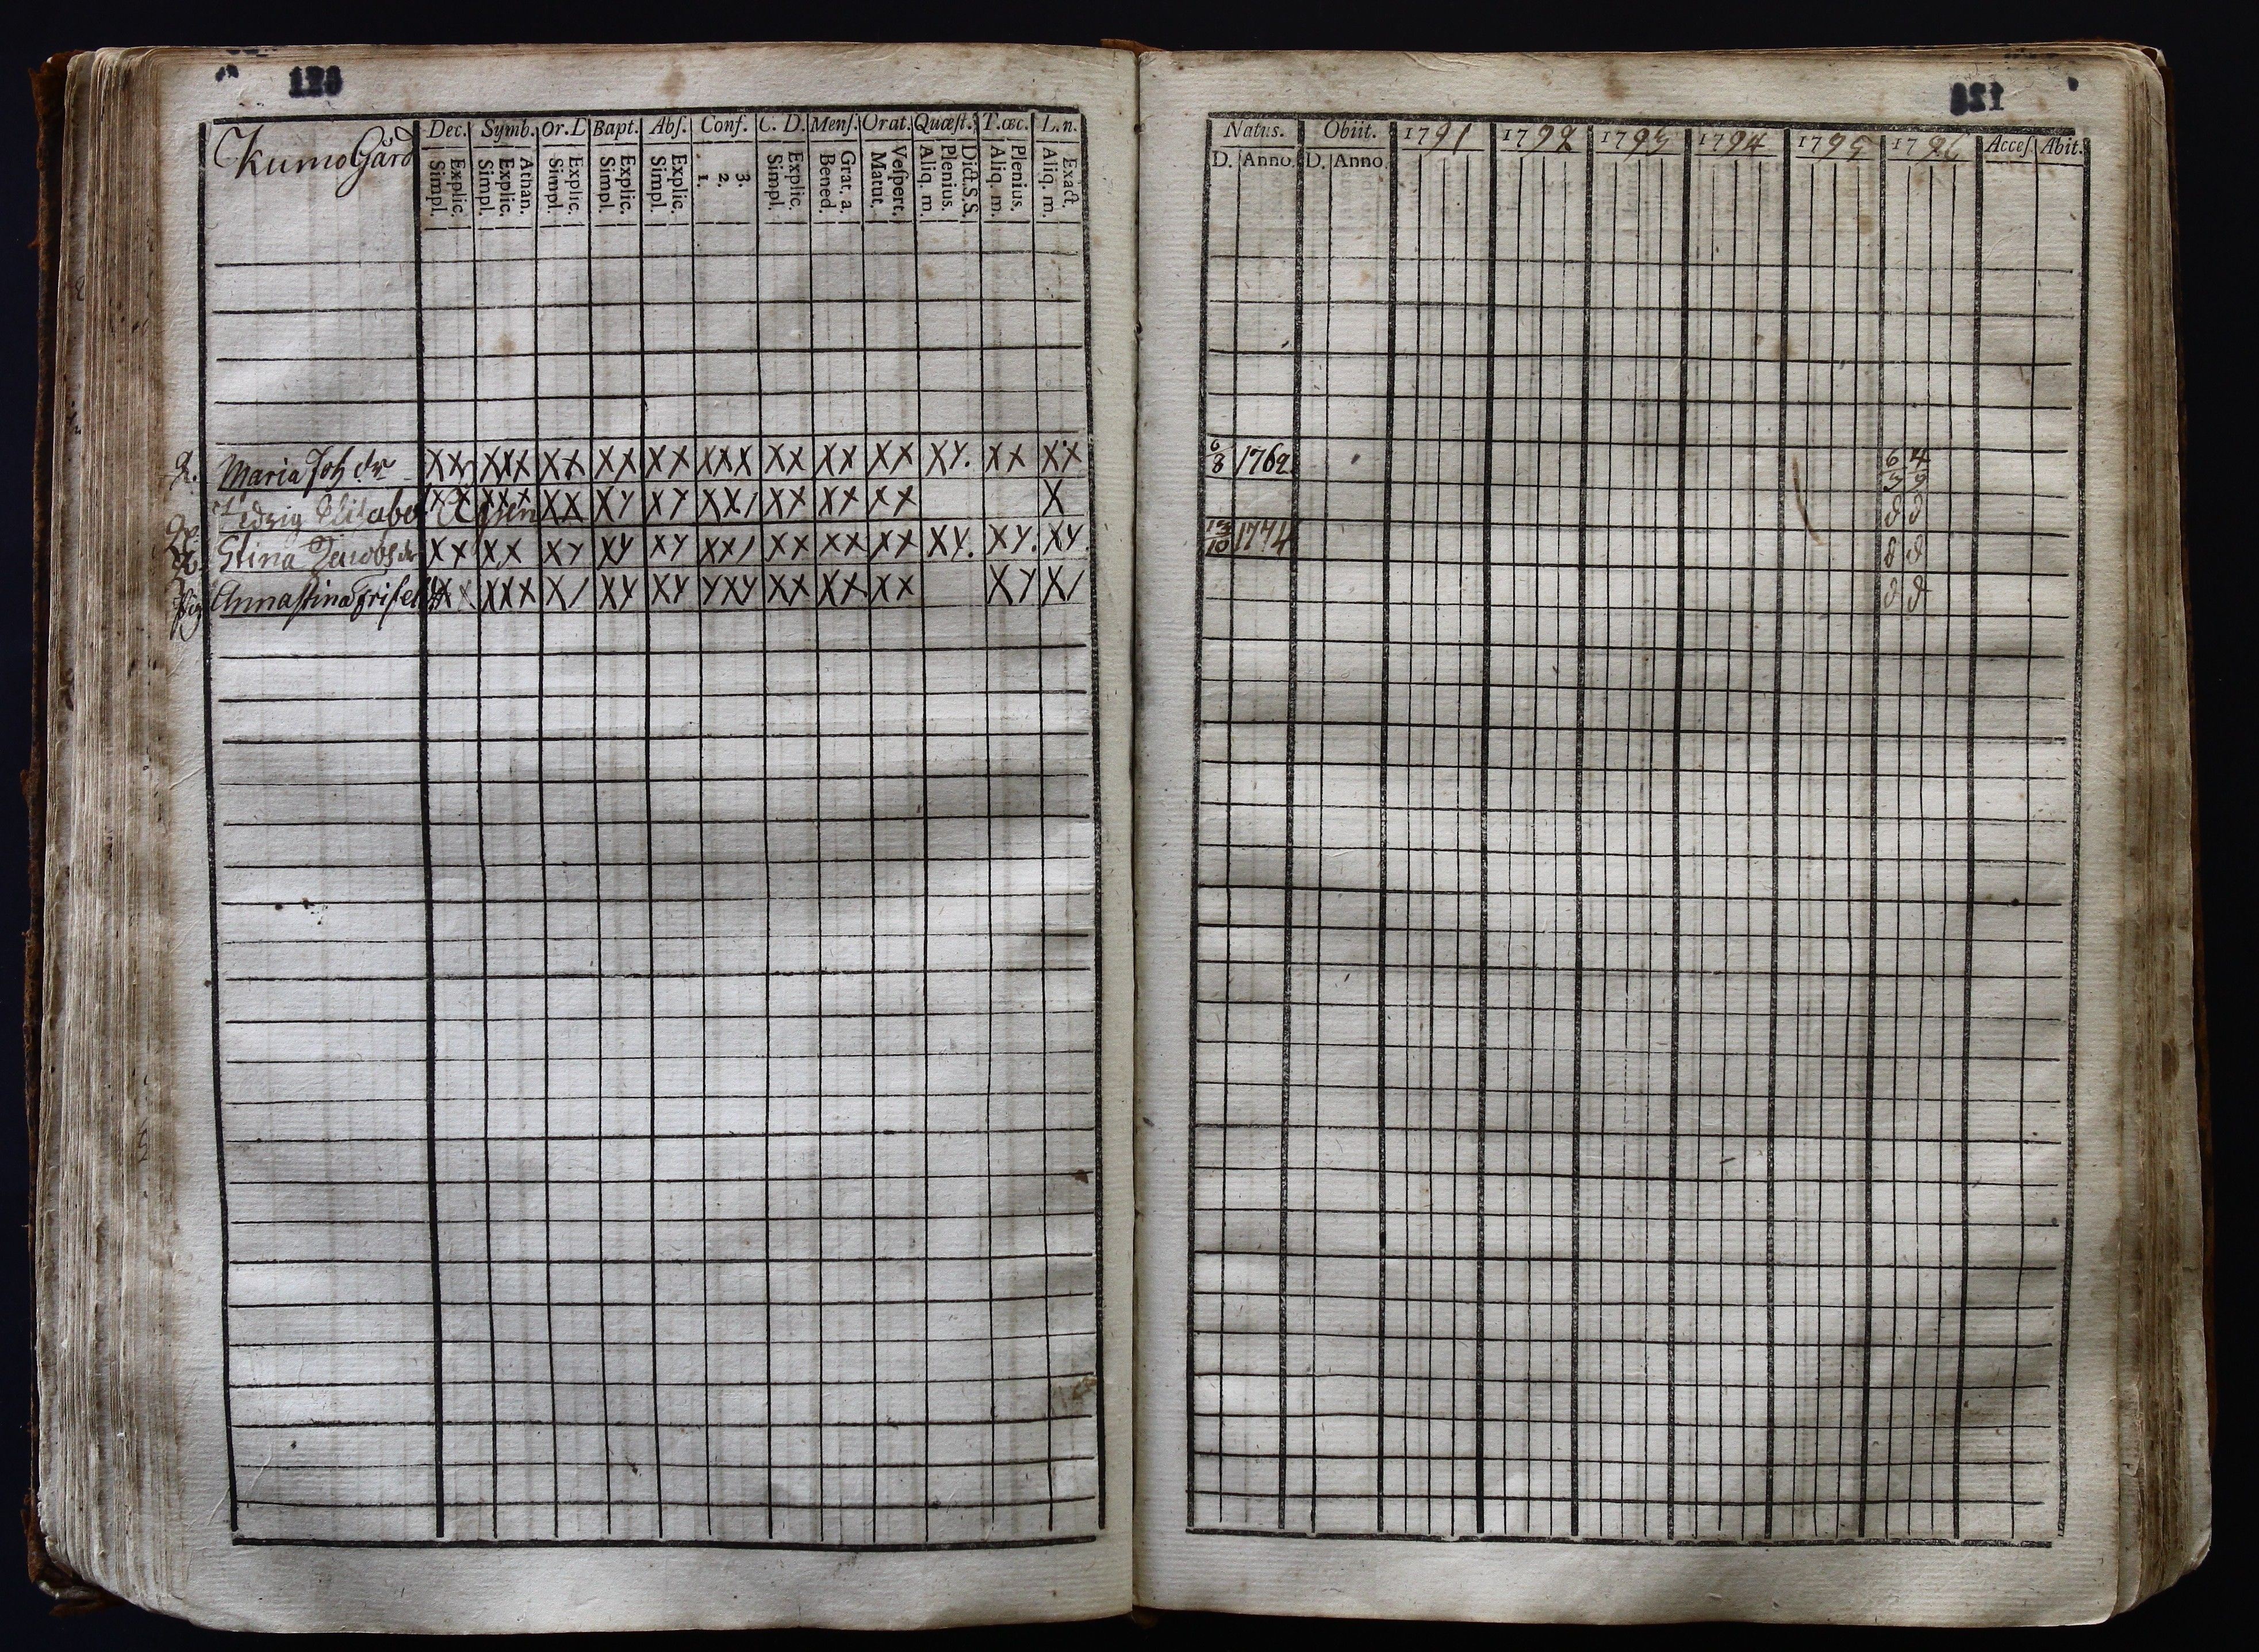 128
Kumo Gård
Dec. Symb. Or. D. Bapt. Abſ. Conf. C. D. Menſ. Orat. Quæſt. T. œc. L. n.
Explic. Simpl. Athan. Explic. Simpl. Explic. Simpl. Explic. Simpl. Explic. Simpl. 3. 2. 1. Explic. Simpl. Grat. a. Bened. Veſpert. Matut. Dict. S. S. Plenius. Aliq. m. Plenius. Aliq. m. Exact. Aliq. m.
Maria Joh dr XX XXX XX XX XX XXX XX XX XX XY. XX XX
Hedvig Elisabe XX XXX XX XY XY XX/ XX XX XX X
Stina Jacobs dr XX XX XY XY XY XX/ XX XX XX XY. XY. XY.
Anna Stina XX XXX X/ XY XY YXY XX XX XX XY X/
Natus. Obiit. 1791 1792 1793 1794 1795 1796 Acceſ. Abit.
D. Anno. D. Anno.
6/8 1762 6/3 4/9
∂ ∂
13/10 1774 ∂ ∂
∂ ∂